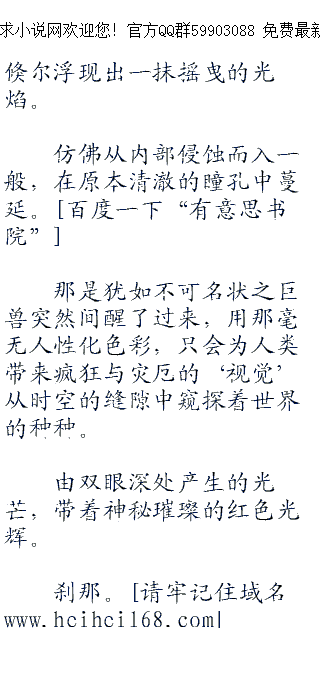 求小说网欢迎您! 官方QQ群59903088 免费最新
倏尔浮现出一抹摇曳的光
焰。
仿佛从内部侵蚀而入一
般，在原本清澈的瞳孔中蔓
延。[百度一下“有意思书
院”]
那是犹如不可名状之巨
兽突然间醒了过来，用那毫
无人性化色彩，只会为人类
带来疯狂与灾厄的‘视觉’
从时空的缝隙中窥探着世界
的种种。
由双眼深处产生的光
芒，带着神秘璀璨的红色光
辉。
刹那。[请牢记住域名
www.hcihci168.com|